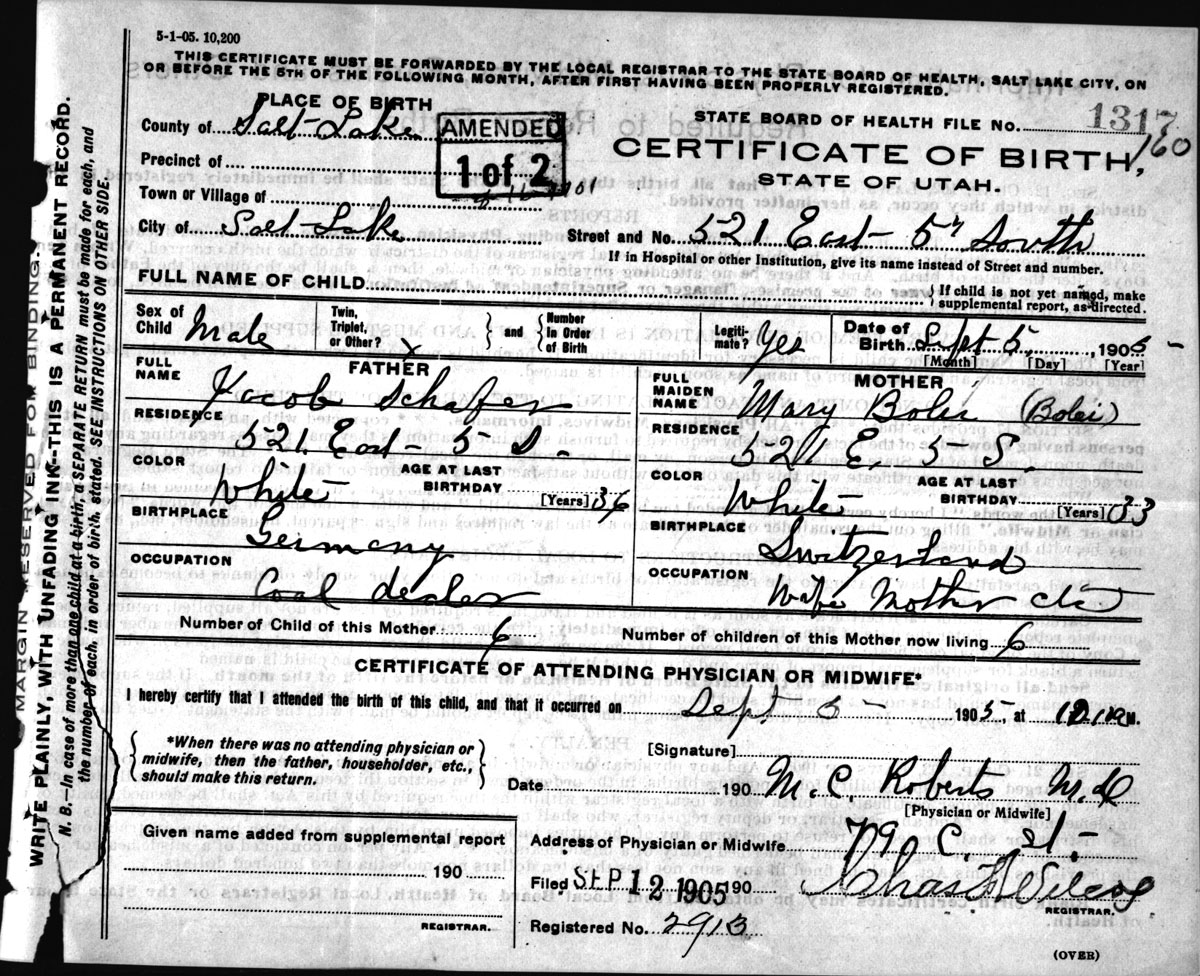 5-1-05. 10,200
THIS CERTIFICATE MUST BE FORWARDED BY THE LOCAL REGISTRAR TO THE STATE BOARD OF HEALTH, SALT LAKE CITY, ON
OR BEFORE THE 5TH OF THE FOLLOWING MONTH, AFTER FIRST HAVING BEEN PROPERLY REGISTERED.
PLACE OF BIRTH
County of Salt-Lake
AMENDED
1 of 2
STATE BOARD OF HEALTH FILE NO. 1317
160
CERTIFICATE OF BIRTH,
STATE OF UTAH.
Precinct of
Town or Village of
City of Salt-Lake
Street and No. 521 East- 5" South
If in Hospital or other Institution, give its name instead of Street and number.
FULL NAME OF CHILD
If child is not yet named, make
supplemental report, as directed.
Sex of Child Male
Twin, Triplet, or Other? x
and
Number In Order of Birth
Legiti- mate? Yes
Date of Birth Sept 5, 1905 -
[Month] [Day] [Year]
FATHER
FULL NAME Jacob Schafer
RESIDENCE
521 East- 5 S.
COLOR White
AGE AT LAST BIRTHDAY 36
[Years]
BIRTHPLACE
Germany
OCCUPATION
Coal dealer
MOTHER
FULL MAIDEN NAME Mary Boler (Bolei)
RESIDENCE
521 E. 5 S.
COLOR White
AGE AT LAST BIRTHDAY 33
[Years]
BIRTHPLACE
Switzerland
OCCUPATION
Wife Mother etc
Number of Child of this Mother 6
Number of children of this Mother now living 6
CERTIFICATE OF ATTENDING PHYSICIAN OR MIDWIFE*
I hereby certify that I attended the birth of this child, and that it occurred on Sept 5 - 1905, at M.
*When there was no attending physician or
midwife, then the father, householder, etc.,
should make this return.
[Signature]
Date 190 M. C. Roberts M.D
[Physician or Midwife]
Given name added from supplemental report
190
REGISTRAR.
Address of Physician or Midwife 79 C. st.
Filed SEP 12 1905 190
REGISTRAR.
Registered No. 2913
(OVER)
MARGIN RESERVED FOR BINDING.
WRITE PLAINLY, WITH UNFADING INK--THIS IS A PERMANENT RECORD.
N. B.—In case of more than one child at a birth, a SEPARATE RETURN must be made for each, and
the number of each, in order of birth, stated. SEE INSTRUCTIONS ON OTHER SIDE.